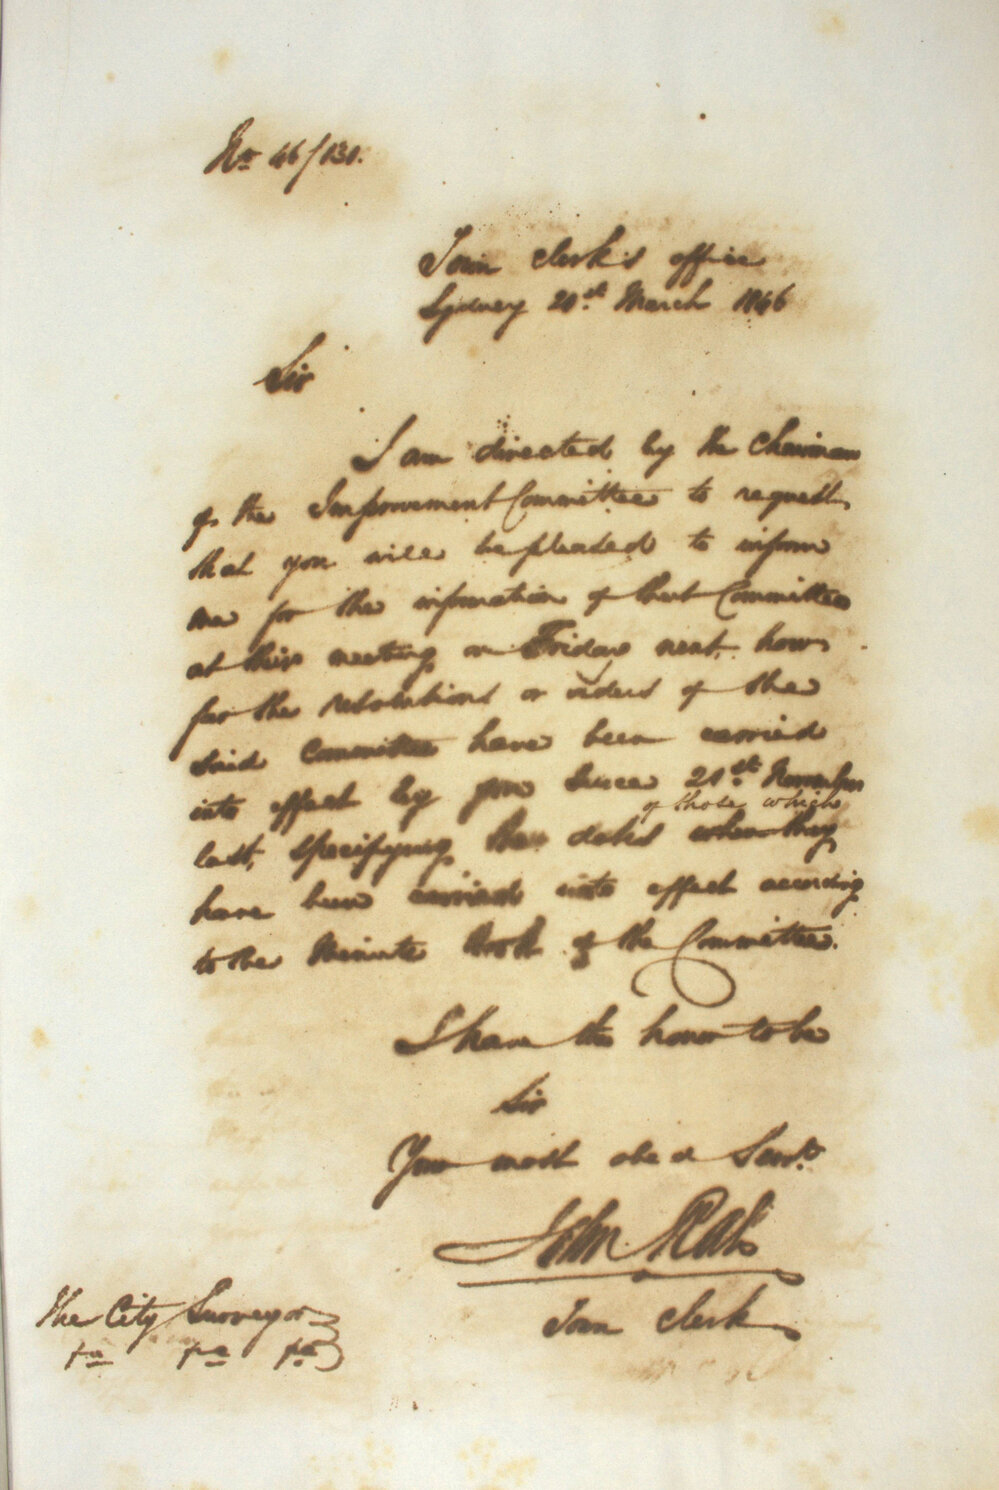 No 46/131.
Town Clerk's office
Sydney 20th March 1846
Sir
I am directed by the Chairman
of the Improvement Committee to request
that you will be pleased to inform
me for the information of that Committee
at their meeting on Friday next, how
far the resolutions or orders of the
said Committee have been carried
into effect by you since 21st November
of those which
last, specifying the dates when they
have been carried into effect according
to the Minute Book of the Committee.
I have the honor to be
Sir
Your most obed Servt
John Rae
Town Clerk
The City Surveyor